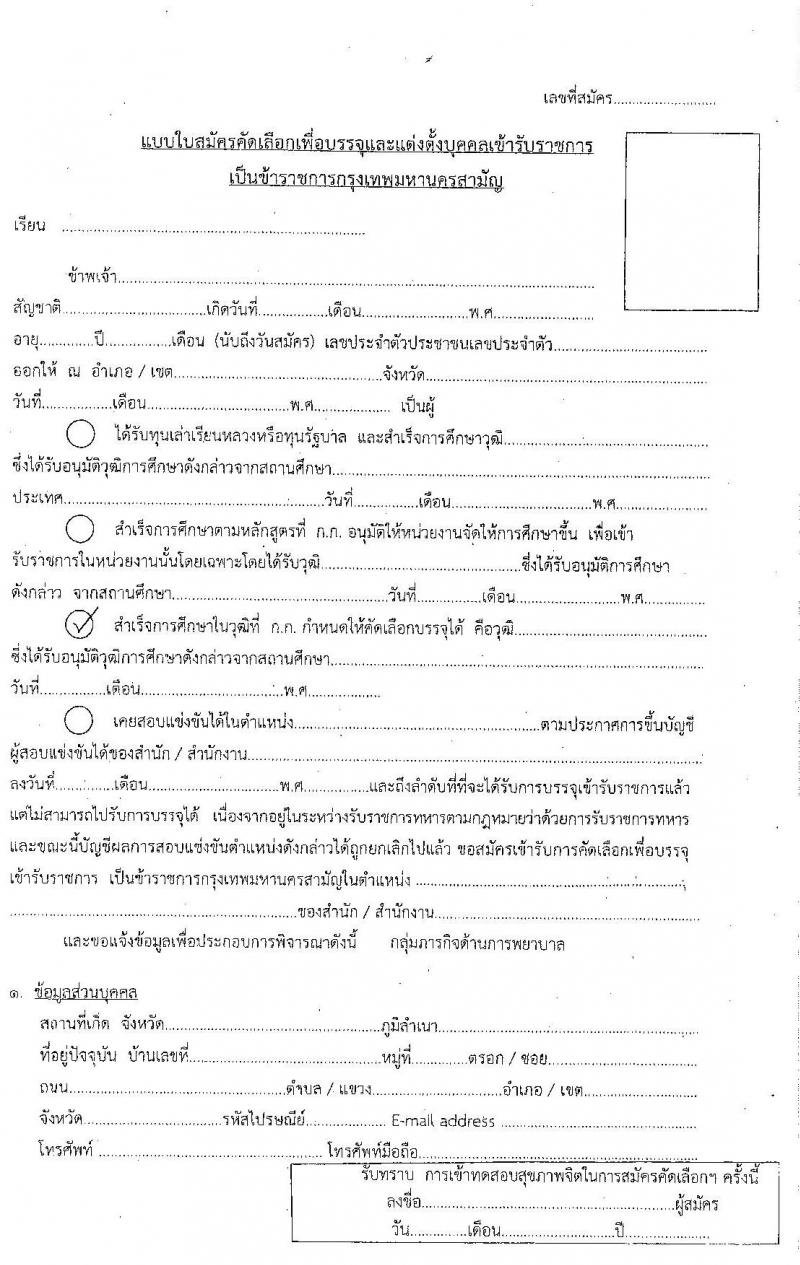 เลขที่สมัคร............................
แบบใบสมัครคัดเลือกเพื่อบรรจุและแต่งตั้งบุคคลเข้ารับราชการ
เป็นข้าราชการกรุงเทพมหานครสามัญ
เรียน ............................................................
ข้าพเจ้า............................................................
สัญชาติ..............................เกิดวันที่................เดือน......................พ.ศ.....................
อายุ.............ปี...............เดือน (นับถึงวันสมัคร) เลขประจำตัวประชาชนเลขประจำตัว..............................
ออกให้ ณ อำเภอ / เขต........................................จังหวัด........................................
วันที่...............เดือน..............................พ.ศ................. เป็นผู้
ได้รับทุนเล่าเรียนหลวงหรือทุนรัฐบาล และสำเร็จการศึกษาวุฒิ........................................
ซึ่งได้รับอนุมัติวุฒิการศึกษาดังกล่าวจากสถานศึกษา............................................................
ประเทศ............................................................วันที่..............เดือน..............................พ.ศ.................
สำเร็จการศึกษาตามหลักสูตรที่ ก.ก. อนุมัติให้หน่วยงานจัดให้การศึกษาขึ้น เพื่อเข้า
รับราชการในหน่วยงานนั้นโดยเฉพาะโดยได้รับวุฒิ........................................ซึ่งได้รับอนุมัติการศึกษา
ดังกล่าว จากสถานศึกษา........................................วันที่..............เดือน......................พ.ศ.................
สำเร็จการศึกษาในวุฒิที่ ก.ก. กำหนดให้คัดเลือกบรรจุได้ คือวุฒิ........................................
ซึ่งได้รับอนุมัติวุฒิการศึกษาดังกล่าวจากสถานศึกษา............................................................
วันที่..............เดือน..............................พ.ศ.................
เคยสอบแข่งขันได้ในตำแหน่ง........................................ตามประกาศการขึ้นบัญชี
ผู้สอบแข่งขันได้ของสำนัก / สำนักงาน............................................................
ลงวันที่..............เดือน..............................พ.ศ................และถึงลำดับที่ที่จะได้รับการบรรจุเข้ารับราชการแล้ว
แต่ไม่สามารถไปรับการบรรจุได้ เนื่องจากอยู่ในระหว่างรับราชการทหารตามกฎหมายว่าด้วยการรับราชการทหาร
และขณะนี้บัญชีผลการสอบแข่งขันตำแหน่งดังกล่าวได้ถูกยกเลิกไปแล้ว ขอสมัครเข้ารับการคัดเลือกเพื่อบรรจุ
เข้ารับราชการ เป็นข้าราชการกรุงเทพมหานครสามัญในตำแหน่ง ........................................
............................................................ของสำนัก / สำนักงาน........................................
และขอแจ้งข้อมูลเพื่อประกอบการพิจารณาดังนี้ กลุ่มภารกิจด้านการพยาบาล
๑. ข้อมูลส่วนบุคคล
สถานที่เกิด จังหวัด........................................ภูมิลำเนา........................................
ที่อยู่ปัจจุบัน บ้านเลขที่........................................หมู่ที่............ตรอก / ซอย..............................
ถนน........................................ตำบล / แขวง..............................อำเภอ / เขต......................
จังหวัด..............................รหัสไปรษณีย์................. E-mail address ........................................
โทรศัพท์ ........................................ โทรศัพท์มือถือ........................................
รับทราบ การเข้าทดสอบสุขภาพจิตในการสมัครคัดเลือกฯ ครั้งนี้
ลงชื่อ........................................ผู้สมัคร
วัน..............เดือน......................ปี......................